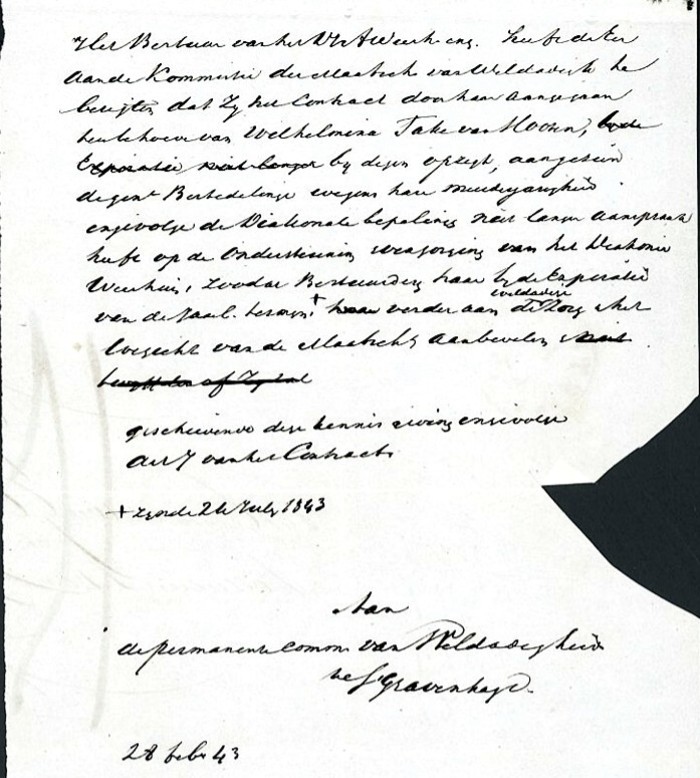 Het Bestuur van het D: A Weesh: enz. heeft de Eer
aan de Kommissie der Maatsch van Weldadigh te
berigten dat Zij het Contract door haar aangegaan
ten behoeve van Wilhelmina Take van Hoorn, by de
Expiratie niet langer by dezen opzegt, aangezien
dezen Bestedelinge wegens hare meerderjarigheid
engevolge de Diakonale bepaling niet langer aanspraak
heeft op de Ondersteuning verzorging van het Diakonie
Weeshuis, zoodat Bestuurders haar by de Expiratie
van de + haar verder aan de weldadige Zorg & het
toezicht van de Maatsch aanbevelen
of
geschiedende deze kennisgeving engevolge
Art 7 van het Contract
+ zynde 26 July 1843
Aan
de permanente Comm van Weldadigheid
te s'Gravenhage.
28 feb 43